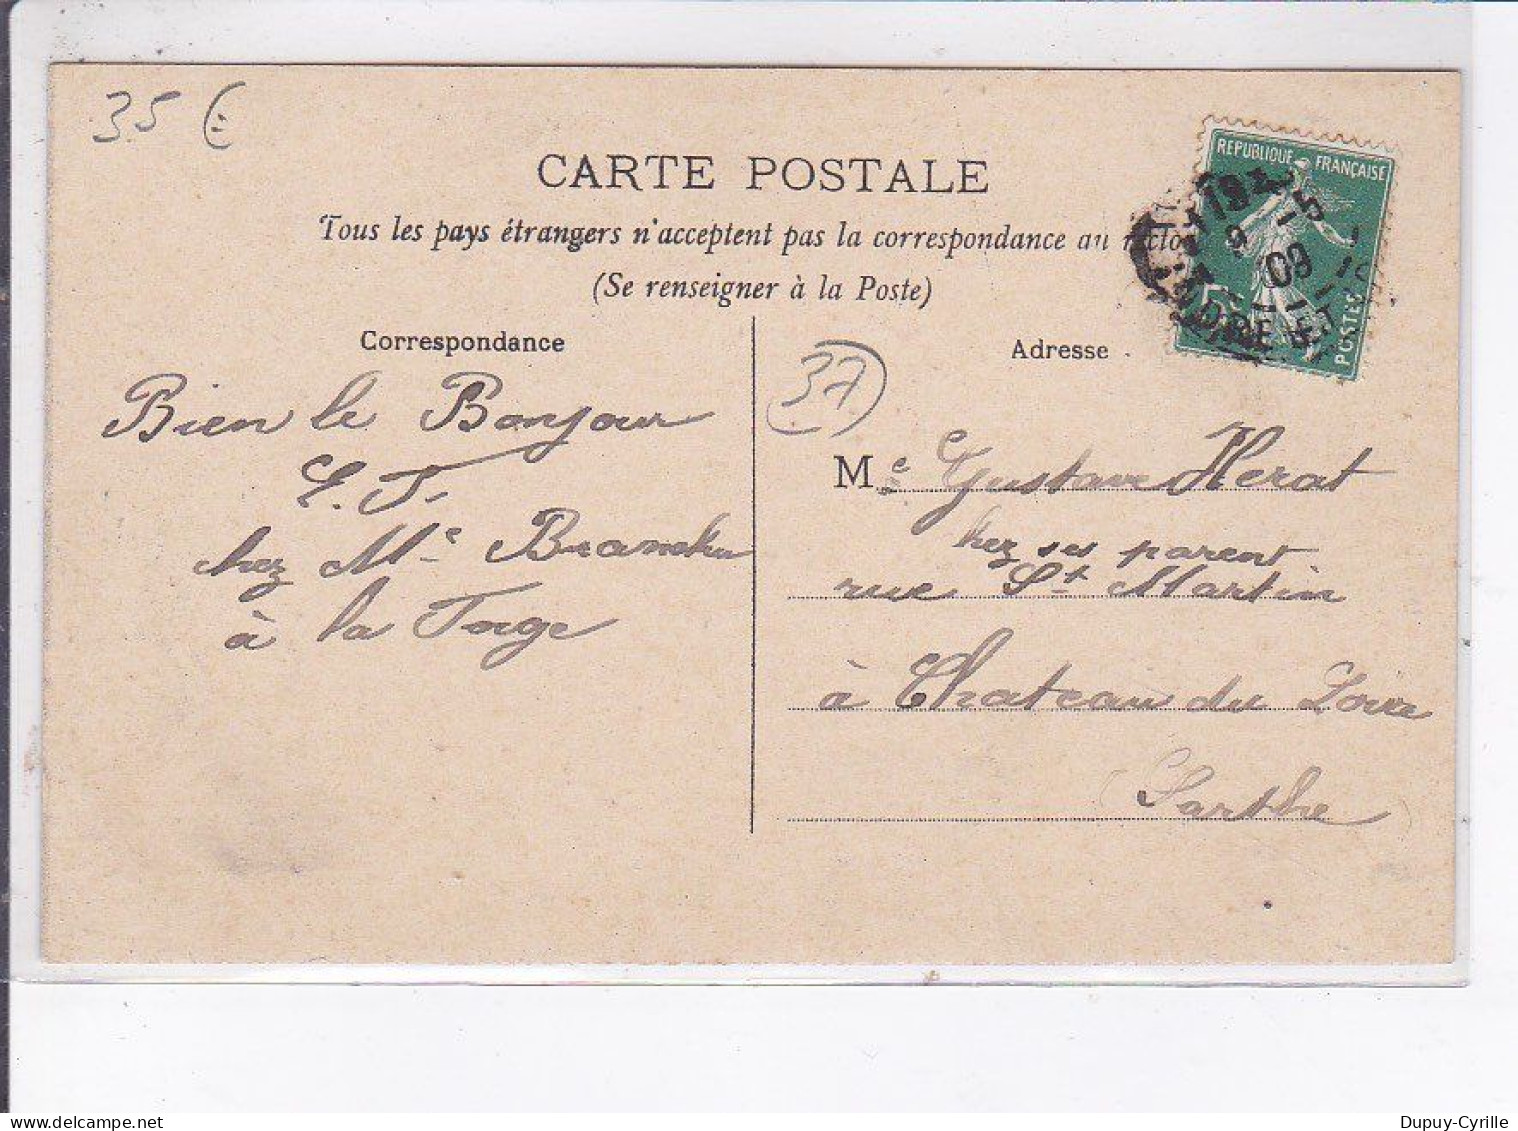 35 €
CARTE POSTALE
Tous les pays étrangers n'acceptent pas la correspondance au recto
(Se renseigner à la Poste)
REPUBLIQUE FRANÇAISE
POSTES
19
9 -5
09
INDRE ET
Correspondance
Bien le Bonjour
chez Me
à la Forge
37
Adresse
Me Gustave Herat
chez ses parent
rue St Martin
à Chateau du Loire
(Sarthe)
Dupuy-Cyrille